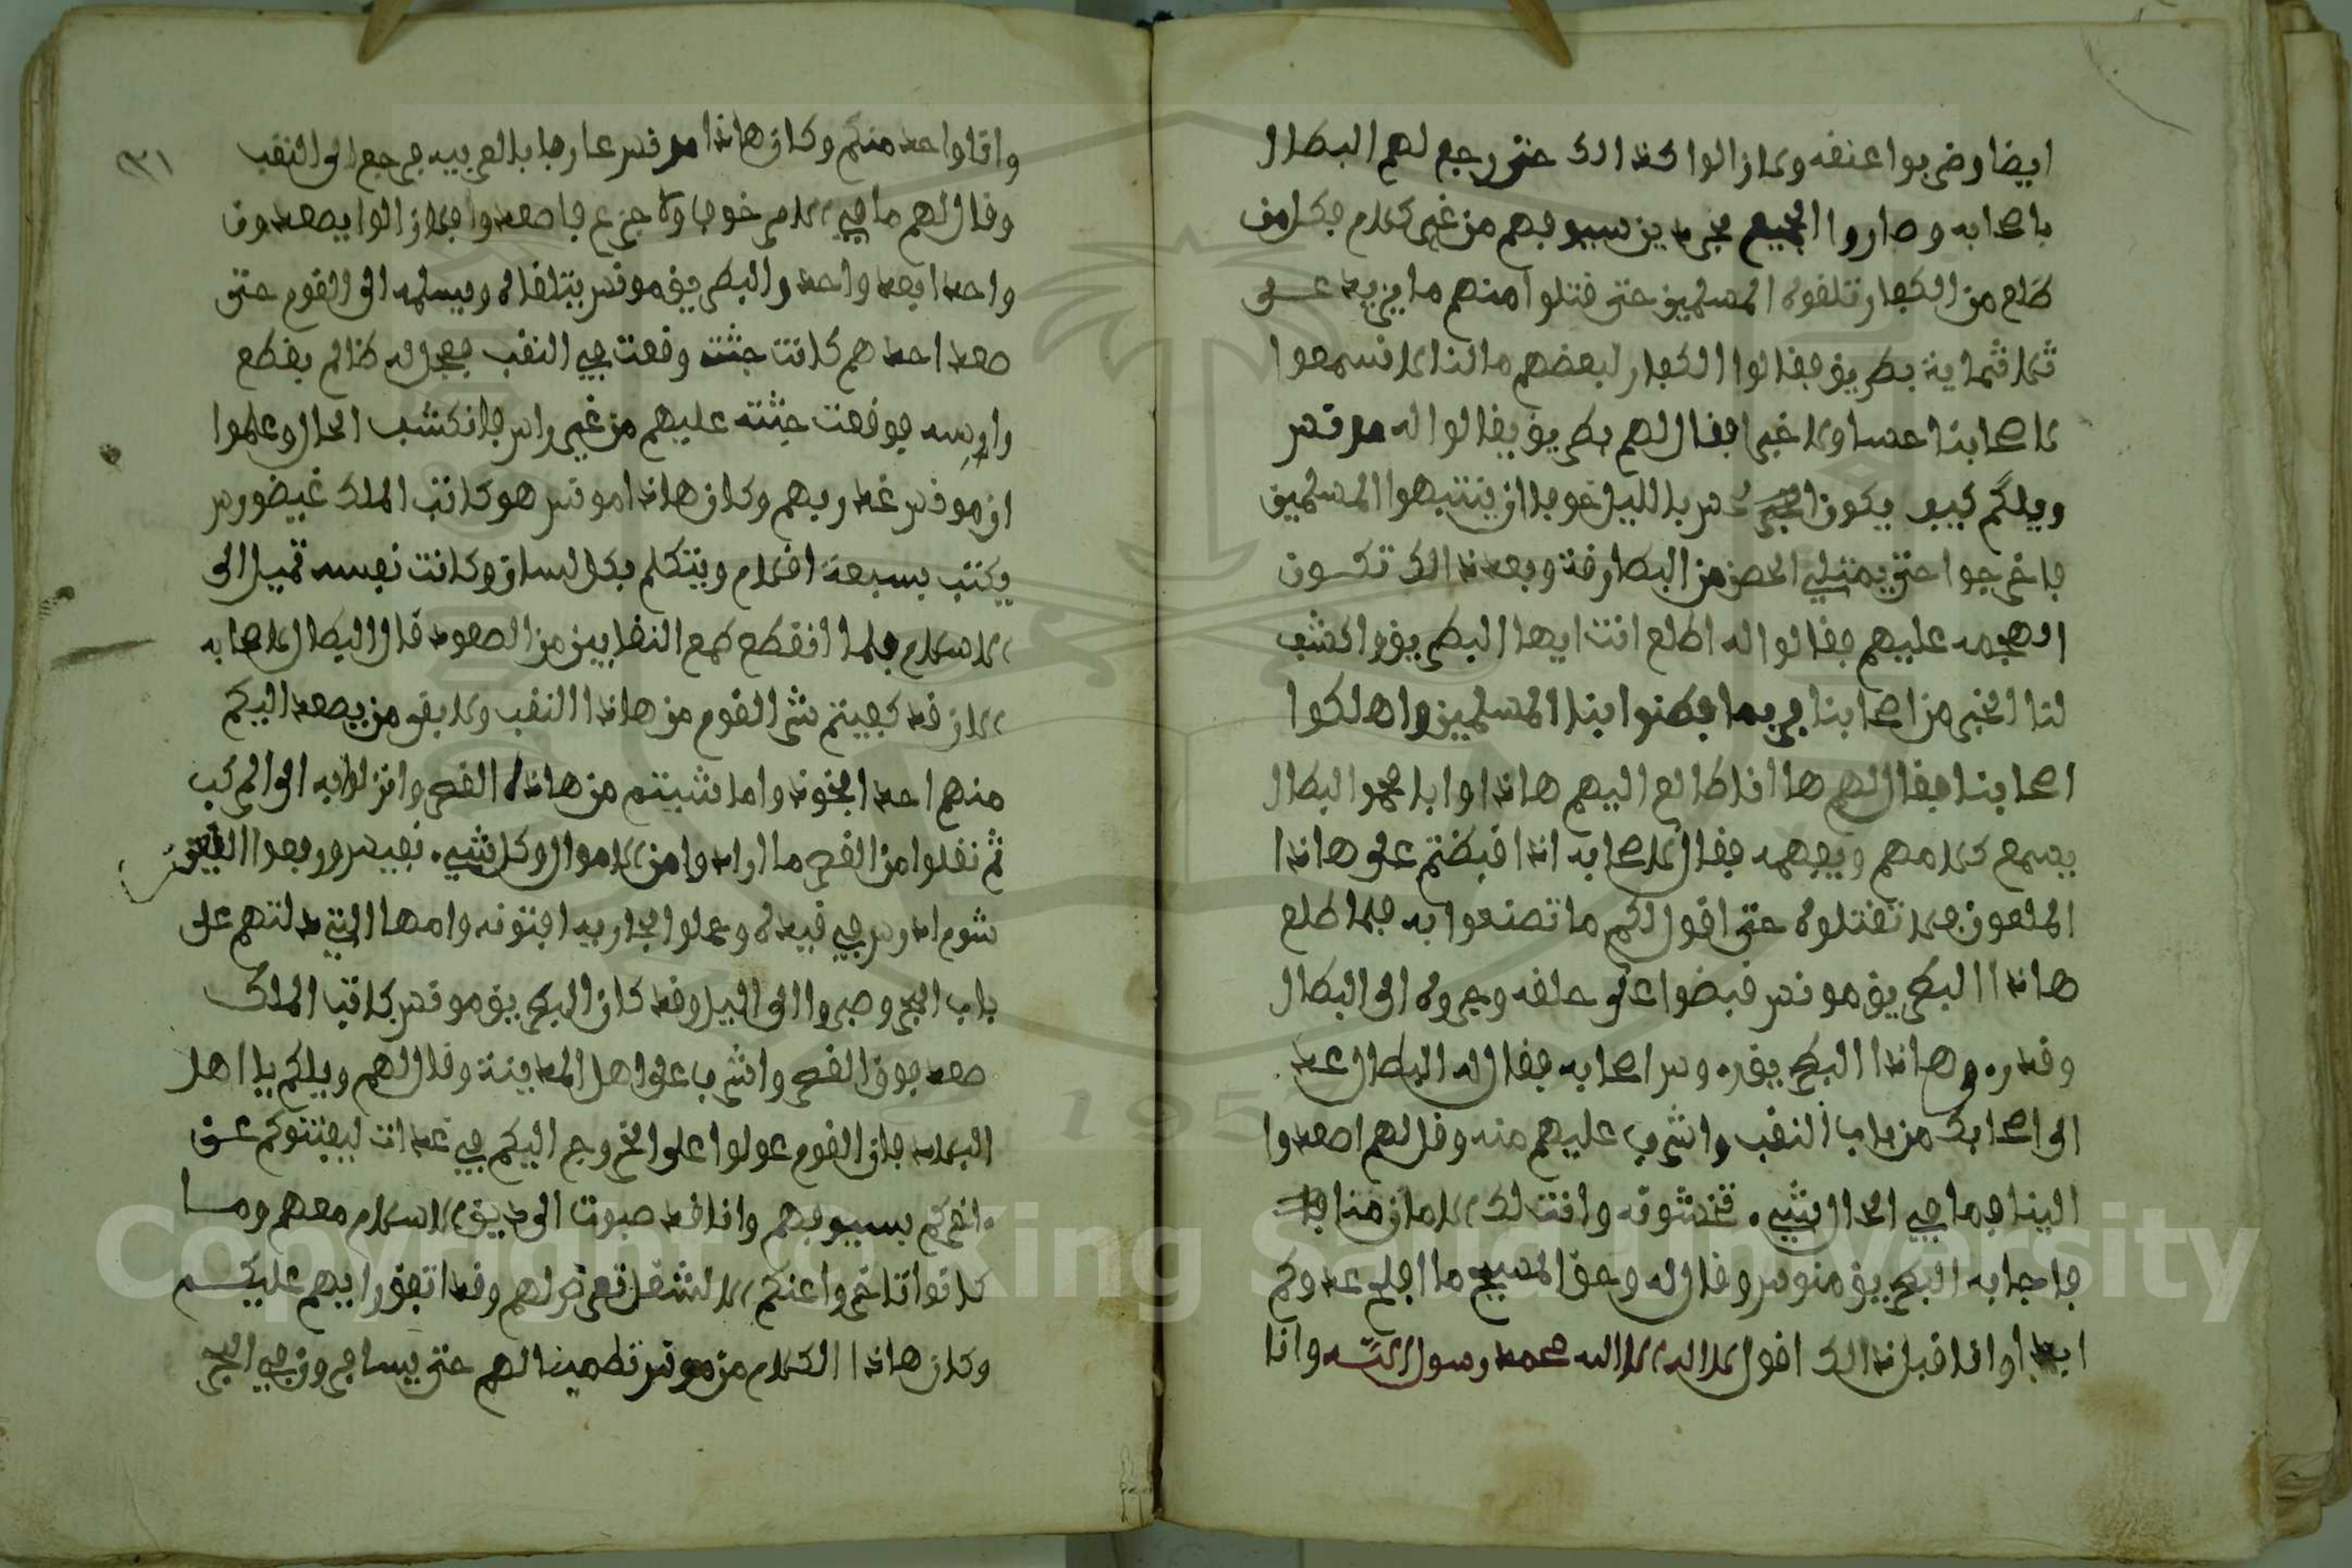 ايضا وضربوا عنفه ولازالوا كذالك حتى رجع لهم البطال
باصحابه وصاروا الجميع مجردين سيوفهم من غير كلام فكل من
طلع من الكفار تلقوه المسلمين حتى قتلوا منهم ما يزيد على
ثلاثماية بطريق فقالوا الكفار لبعضهم ما لنا لا نسمعوا
لاصحابنا حسا ولا خبرا فقال لهم بطريق يقالوا له مرقس
ويلكم كيف يكون الحس بالليل خوفا ان ينتبهوا المسلمين
فاخرجوا حتى يمتلي الحصن من البطارقة وبعد ذالك تكون
الهجمه عليهم فقالوا له اطلع انت ايها البطريق واكشف
لنا الخبر من اصحابنا فربما فطنوا بنا المسلمين واهلكوا
اصحابنا فقال لهم ها انا طالع اليهم هاذا وابا محمد البطال
يسمع كلامهم ويفهمه فقال لاصحابه اذا قبضتم على هاذا
الملعون فلا تقتلوه حتى اقول لكم ما تصنعوا به فلما طلع
هاذا البطريق موقس قبضوا على حلقه وجروه الى البطال
وقدره وهاذا البطريق اصحابه فقال له البطال عد
الى اصحابك من باب النقب واشرف عليهم منه وقل لهم اصعدوا
الينا فما في الحال شيء تخشونه وانت لك الامان منا
فاجابه البطريق منوس وقال له وحق المسيح ما افلح عدوكم
ابدا وانا قبل ذالك اقول لا اله الا الله محمد رسول الله وانا
٩٣١
وانا واحد منكم وكان هاذا مرقس عارفا بالعربيه فرجع الى النقب
وقال لهم ما في الامر خوف ولا جزع فاصعدوا فلازالوا يصعدون
واحدا بعد واحد والبطريق موقس يتلقاه ويسلمه الى القوم حتى
صعد احدهم كانت جثته وقعت في النقب فعجل له ظالم بقطع
راسه فوقعت جثته عليهم من غير راس فانكشف الحال وعلموا
ان موقس غدر بهم وكان هاذا موقس هو كاتب الملك غيضورس
يكتب بسبعة اقلام ويتكلم بكل لسان وكانت نفسه تميل الى
الاسلام فلما انقطع طمع النقابين من الصعود قال البطال لاصحابه
الان قد كفيتم شر القوم من هاذا النقب ولا بقى من يصعد اليكم
منهم احد فخذوا ما شيتم من هاذا القصر وانزلوا به الى المركب
ثم نقلوا من القصر ما ارادوا من الاموال وكل شيء نفيس ورفعوا
شومدرس في قيده وعملوا الجاريه افتونه وامها التي دلتهم على
باب البحر وصبروا الى الليل وقد كان البطريق موقس كاتب الملك
صعد فوق القصر واشرف على اهل المدينة وقال لهم ويلكم يا اهل
البلاد فان القوم عولوا على الخروج اليكم في غداة ليفنتوكم عن
اخركم بسيوفهم وانا قد صبوت الى دين الاسلام معهم وما
كانوا تاخروا عنكم الا لشغل تعرض لهم وقد اتفق رايهم عليكم
وكان هاذا الكلام من موقس تطمينا لهم حتى يسافرون في البحر